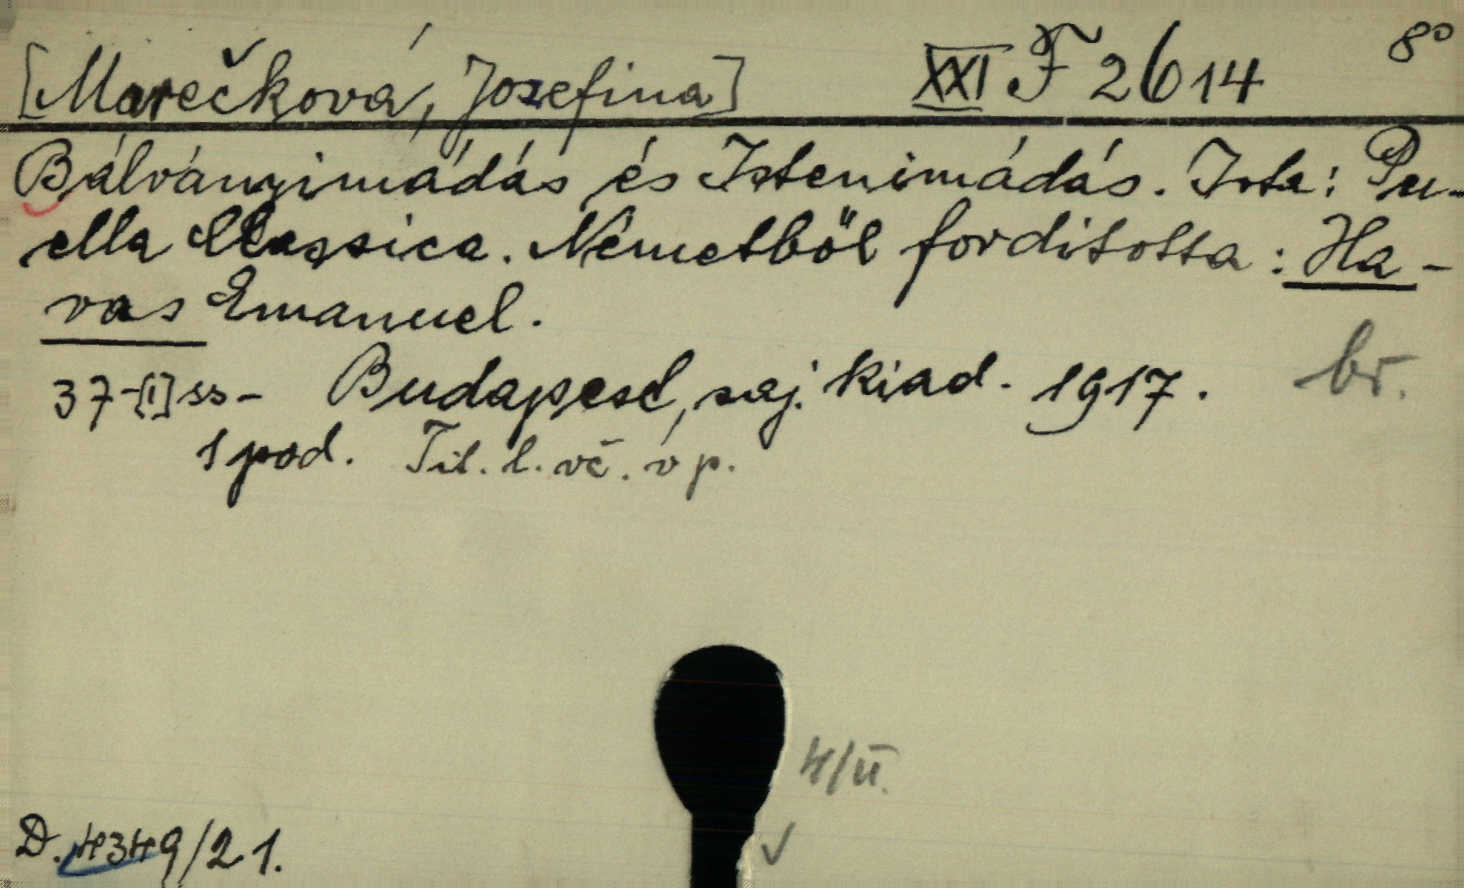 [Marečková, Josefina] XXI F 2614 8°
Bálványimádás és Istenimádás. Irta: Pu-
ella Classica. Németböl forditotta: Ha-
vas Emanuel.
37-[1] ss - Budapest, saj. kiad. 1917. br.
1 pod. Tit. l. vč. v p.
4/II.
D. 4349/21.